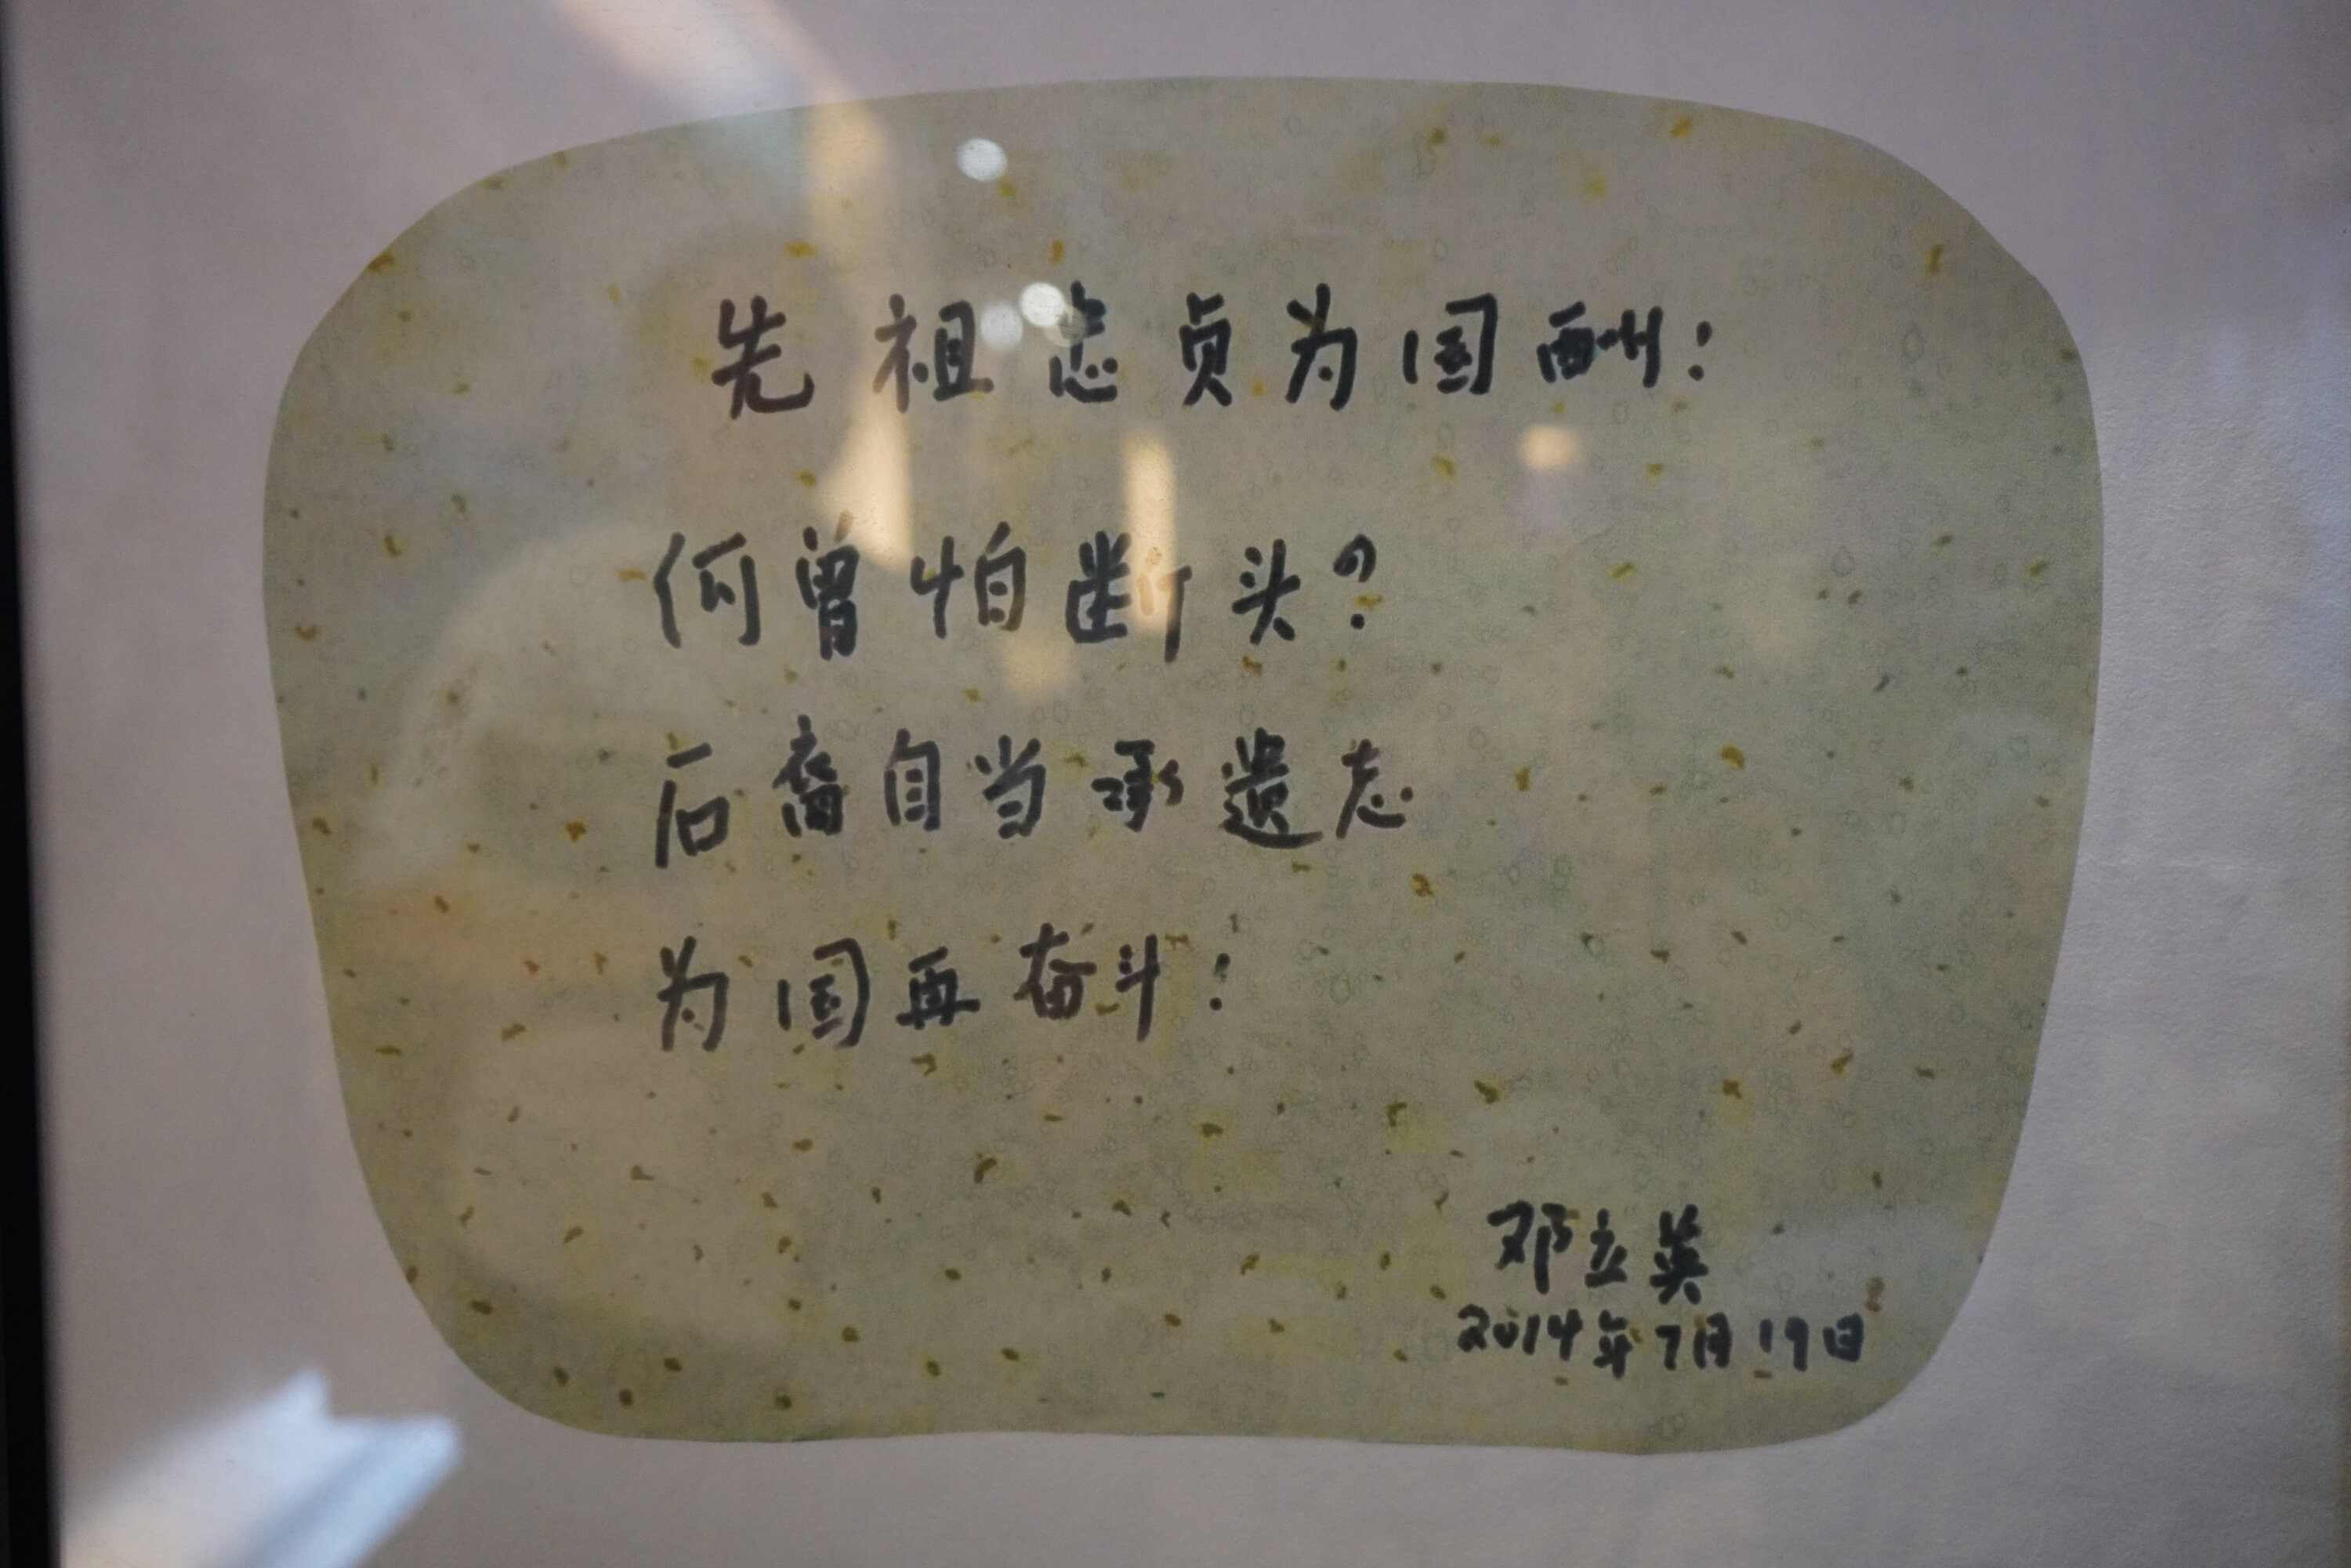 先祖忠贞为国酬！
何曾怕断头？
后裔自当承遗志
为国再奋斗！
邓立英
2014年7月19日